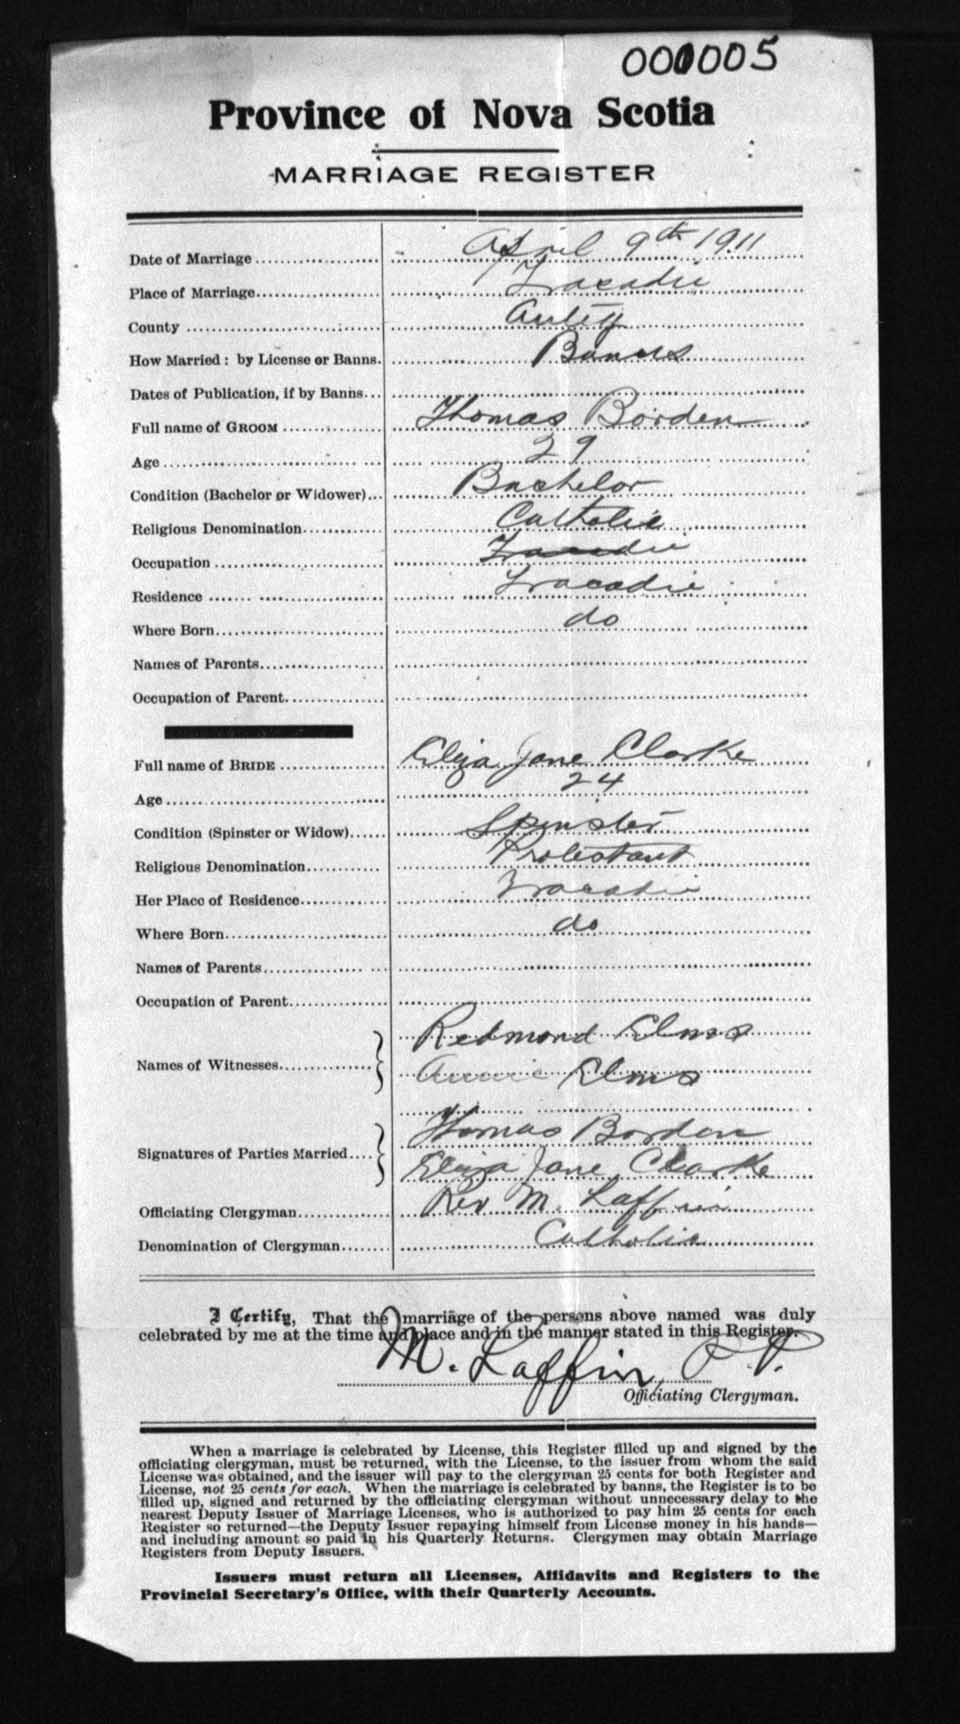 000005
Province of Nova Scotia
MARRIAGE REGISTER
Date of Marriage April 9th 1911
Place of Marriage Tracadie
County
How Married: by License or Banns. Banns
Dates of Publication, if by Banns
Full name of GROOM Thomas Borden
Age 29
Condition (Bachelor or Widower) Bachelor
Religious Denomination Catholic
Occupation Tracadie
Residence Tracadie
Where Born do
Names of Parents
Occupation of Parent
Full name of BRIDE Eliza Jane Clarke
Age 24
Condition (Spinster or Widow) Spinster
Religious Denomination Protestant
Her Place of Residence Tracadie
Where Born do
Names of Parents
Occupation of Parent
Redmond Elms
Names of Witnesses
Annie Elms
Thomas Borden
Signatures of Parties Married
Eliza Jane Clarke
Officiating Clergyman Rev M. Laffin
Denomination of Clergyman Catholic
I Certify, That the marriage of the persons above named was duly
celebrated by me at the time and place and in the manner stated in this Register.
M. Laffin, P.P.
Officiating Clergyman.
When a marriage is celebrated by License, this Register filled up and signed by the
officiating clergyman, must be returned, with the License, to the issuer from whom the said
License was obtained, and the issuer will pay to the clergyman 25 cents for both Register and
License, not 25 cents for each. When the marriage is celebrated by banns, the Register is to be
filled up, signed and returned by the officiating clergyman without unnecessary delay to the
nearest Deputy Issuer of Marriage Licenses, who is authorized to pay him 25 cents for each
Register so returned—the Deputy Issuer repaying himself from License money in his hands—
and including amount so paid in his Quarterly Returns. Clergymen may obtain Marriage
Registers from Deputy Issuers.
Issuers must return all Licenses, Affidavits and Registers to the
Provincial Secretary's Office, with their Quarterly Accounts.